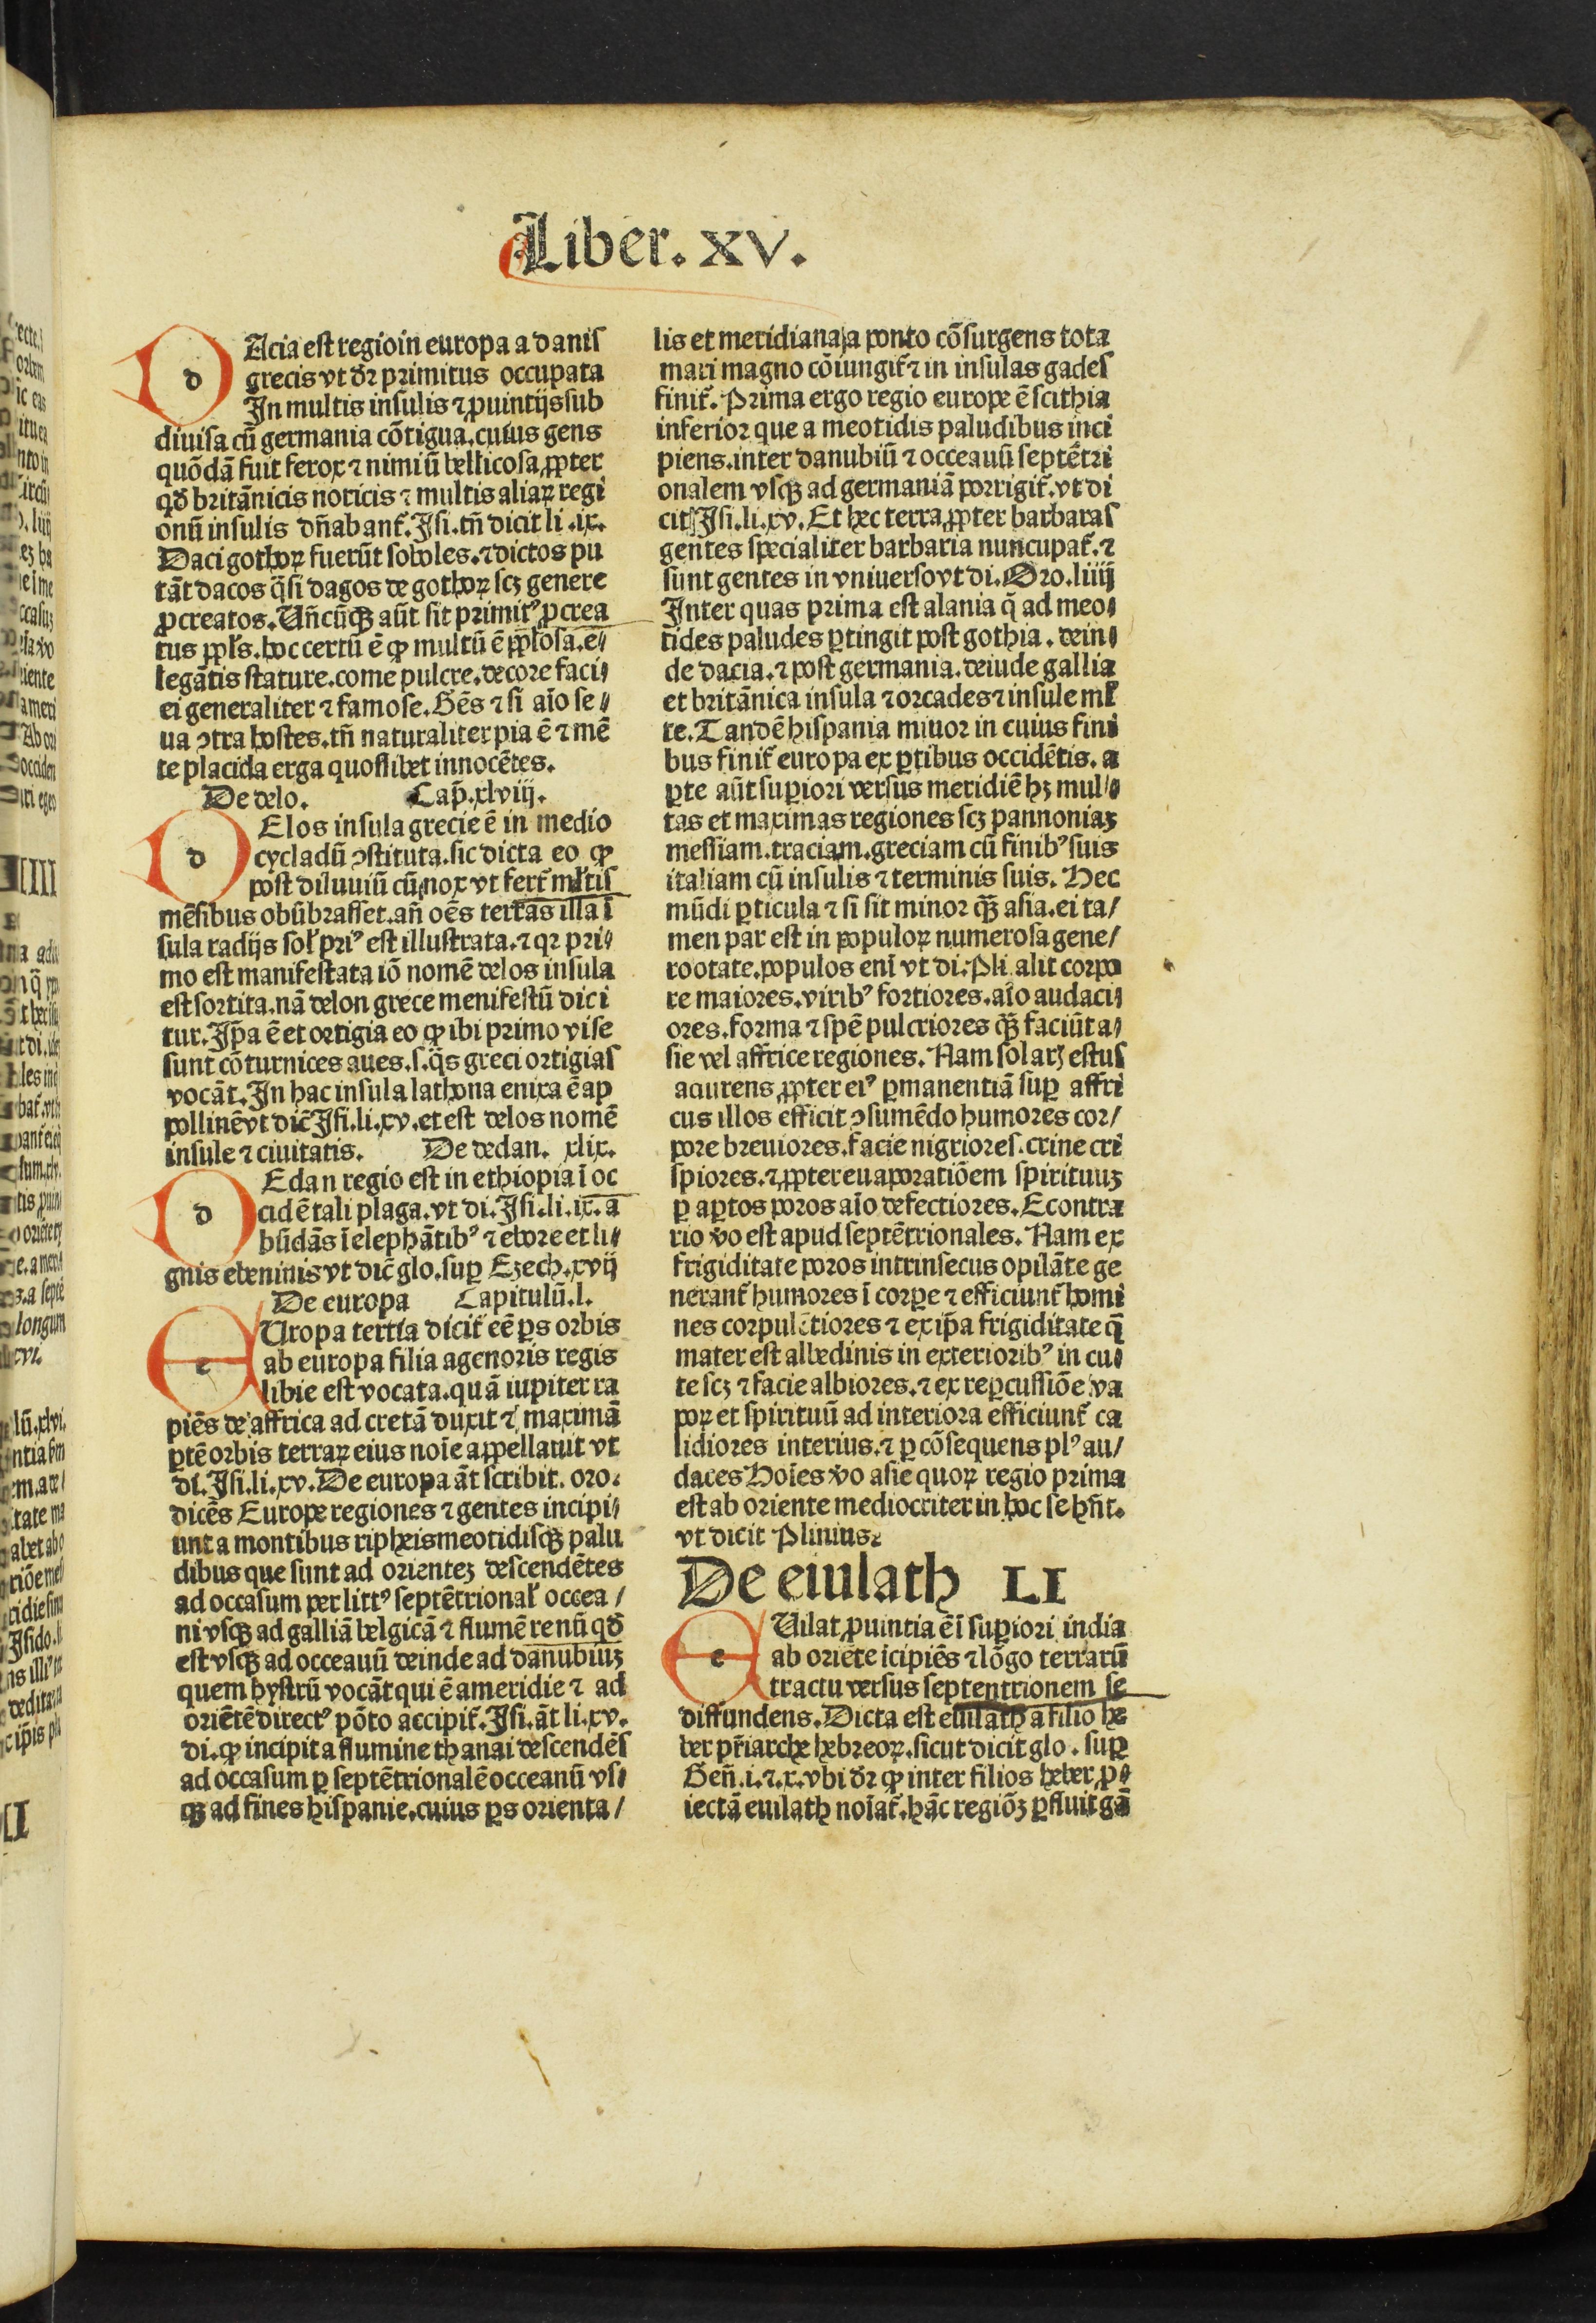 Liber. XV.
DAcia est regio in europa a danis
grecis vt dr̄ primitus occupata
In multis insulis ⁊ ꝓuintijs sub
diuisa cū germania cōtigua. cuius gens
quōdā fuit ferox ⁊ nimiū bellicosa, ꝓpter
qđ britānicis noricis ⁊ multis aliaꝝ regi
onū insulis dn̄abant̃. Isi. tn̄ dicit li .ix.
Daci gothoꝝ fuerūt soboles. ⁊ dictos pu
tāt dacos q̄si dagos de gothoꝝ scꝫ genere
ꝓcreatos. Vn̄cūqꝫ aūt sit primitꝰ ꝓcrea
tus ppl̄s. hoc certū ē ꝙ multū ē ppl̄osa. e⸗
legātis stature. come pulcre. decore faci⸗
ei generaliter ⁊ famose. Gēs ⁊ si aīo se⸗
ua ↄtra hostes. tn̄ naturaliter pia ē ⁊ mē
te placida erga quoslibet innocētes.
De delo. Cap̄. xlviij.
DElos insula grecie ē in medio
cycladū ↄstituta. sic dicta eo ꝙ
post diluuiū cū nox vt fert̃ ml̄tis
mēsibus obūbrasset. an̄ oēs terras illa ī
sula radijs sol̄ priꝰ est illustrata. ⁊ qꝛ pri⸗
mo est manifestata iō nomē delos insula
est sortita. nā delon grece menifestū dici
tur. Ip̄a ē et ortigia eo ꝙ ibi primo vise
sunt coturnices aues. s. q̄s greci ortigias
vocāt. In hac insula lathona enixa ē ap
pollinē vt dic̄ Isi. li. xv. et est delos nomē
insule ⁊ ciuitatis. De dedan. xlix.
DEdan regio est in ethiopia ī oc
cidētali plaga. vt di. Isi. li. ix. a
būdās ī elephātibꝰ ⁊ ebore et li⸗
gnis ebeninis vt dic̄ glo. suꝑ Ezech. xvij
De europa Capitulū. l.
eUropa tertia dicit̃ eē ꝑs orbis
ab europa filia agenoris regis
libie est vocata. quā iupiter ra
piēs de affrica ad cretā duxit ⁊ maximā
ꝑtē orbis terraꝝ eius noīe appellauit vt
di. Isi. li. xv. De europa āt scribit. oro.
dicēs Europe regiones ⁊ gentes incipi⸗
unt a montibus ripheis meotidisqꝫ palu
dibus que sunt ad orientez descendētes
ad occasum per littꝰ septētrional̄ occea /
ni vsqꝫ ad galliā belgicā ⁊ flumē renū qđ
est vsqꝫ ad occeauū deinde ad danubiuꝫ
quem hystrū vocāt qui ē a meridie ⁊ ad
oriētē directꝰ pōto accipit̃. Isi. āt li. xv.
di. ꝙ incipit a flumine thanai descendēs
ad occasum ꝑ septētrionalē occeanū vs⸗
qꝫ ad fines hispanie. cuius ꝑs orienta /
lis et meridiana, a ponto cōsurgens tota
mari magno cōiungit̃ ⁊ in insulas gades
finit̃. Prima ergo regio europe ē scithia
inferior que a meotidis paludibus inci
piens. inter danubiū ⁊ occeauū septētri
onalem vsqꝫ ad germaniā porrigit̃. vt di
cit Isi. li. xv. Et hec terra, ꝓpter barbaras
gentes specialiter barbaria nuncupat̃. ⁊
sunt gentes in vniuerso vt di. Oro. liiij
Inter quas prima est alania q̄ ad meo⸗
tides paludes ꝑtingit post gothia. dein⸗
de dacia. ⁊ post germania. deiude gallia
et britānica insula ⁊ orcades ⁊ insule ml̄
te. Tandē hispania miuor in cuius fini
bus finit̃ europa ex ꝑtibus occidētis. a
ꝑte aūt suꝑiori versus meridiē hꝫ mul⸗
tas et maximas regiones scꝫ pannoniaꝫ
messiam. traciam. greciam cū finibꝰ suis
italiam cū insulis ⁊ terminis suis. Hec
mūdi ꝑticula ⁊ si sit minor qꝫ̄ asia. ei ta/
men par est in populoꝝ numerosa gene/
rootate. populos enī vt di. Pli alit corpo
re maiores. viribꝰ fortiores. aīo audaci⸗
ores. forma ⁊ spē pulcriores qꝫ̄ faciūt a⸗
sie vel affrice regiones. Nam solarꝫ estus
adurens ꝓpter eiꝰ ꝑmanentiā suꝑ affri
cus illos efficit ↄsumēdo humores cor/
pore breuiores. facie nigriores. crine cri
spiores. ⁊ ꝓpter euaporatiōem spirituuꝫ
ꝑ aꝑtos poros aīo defectiores. Econtra
rio v̄o est apud septētrionales. Nam ex
frigiditate poros intrinsecus opilāte ge
nerant̃ humores ī corꝑe ⁊ efficiunt̃ homi
nes corpulētiores ⁊ ex ip̄a frigiditate q̄
mater est albedinis in exterioribꝰ in cu⸗
te scꝫ ⁊ facie albiores. ⁊ ex reꝑcussiōe va
poꝝ et spirituū ad interiora efficiunt̃ ca
lidiores interius. ⁊ ꝑ cōsequens plꝰ au/
daces Hoīes v̄o asie quoꝝ regio prima
est ab oriente mediocriter in hoc se hn̄t.
vt dicit Plinius.
De eiulath LI
eUilat, ꝓuintia ē ī suꝑiori india
ab oriēte īcipiēs ⁊ lōgo terrarū
tractu versus septentrionem se
diffundens. Dicta est eiulath a filio he
ber pr̄iarche hebreoꝝ. sicut dicit glo. suꝑ
Gen̄. i. ⁊. x. vbi dr̄ ꝙ inter filios heber, ꝓ⸗
iectā euilath noīat̃. hāc regiōꝫ ꝑfluit gā